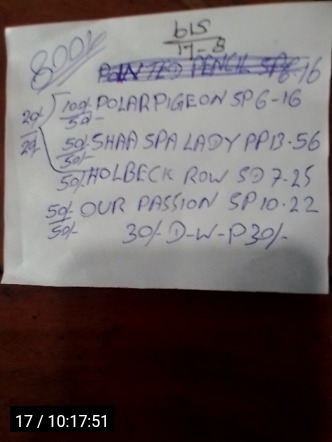 8001
615
17-8
PAINTED PENCIL SP8-16
20/- 100/- POLAR PIGEON SP 6-16
20/- 50/-
50/- SHAA SPA LADY PP 13.56
50/-
50/- HOLBECK ROW SD 7-25
50/- OUR PASSION SP 10.22
50/- 30/- D-W-P 30/-
17 / 10:17:51